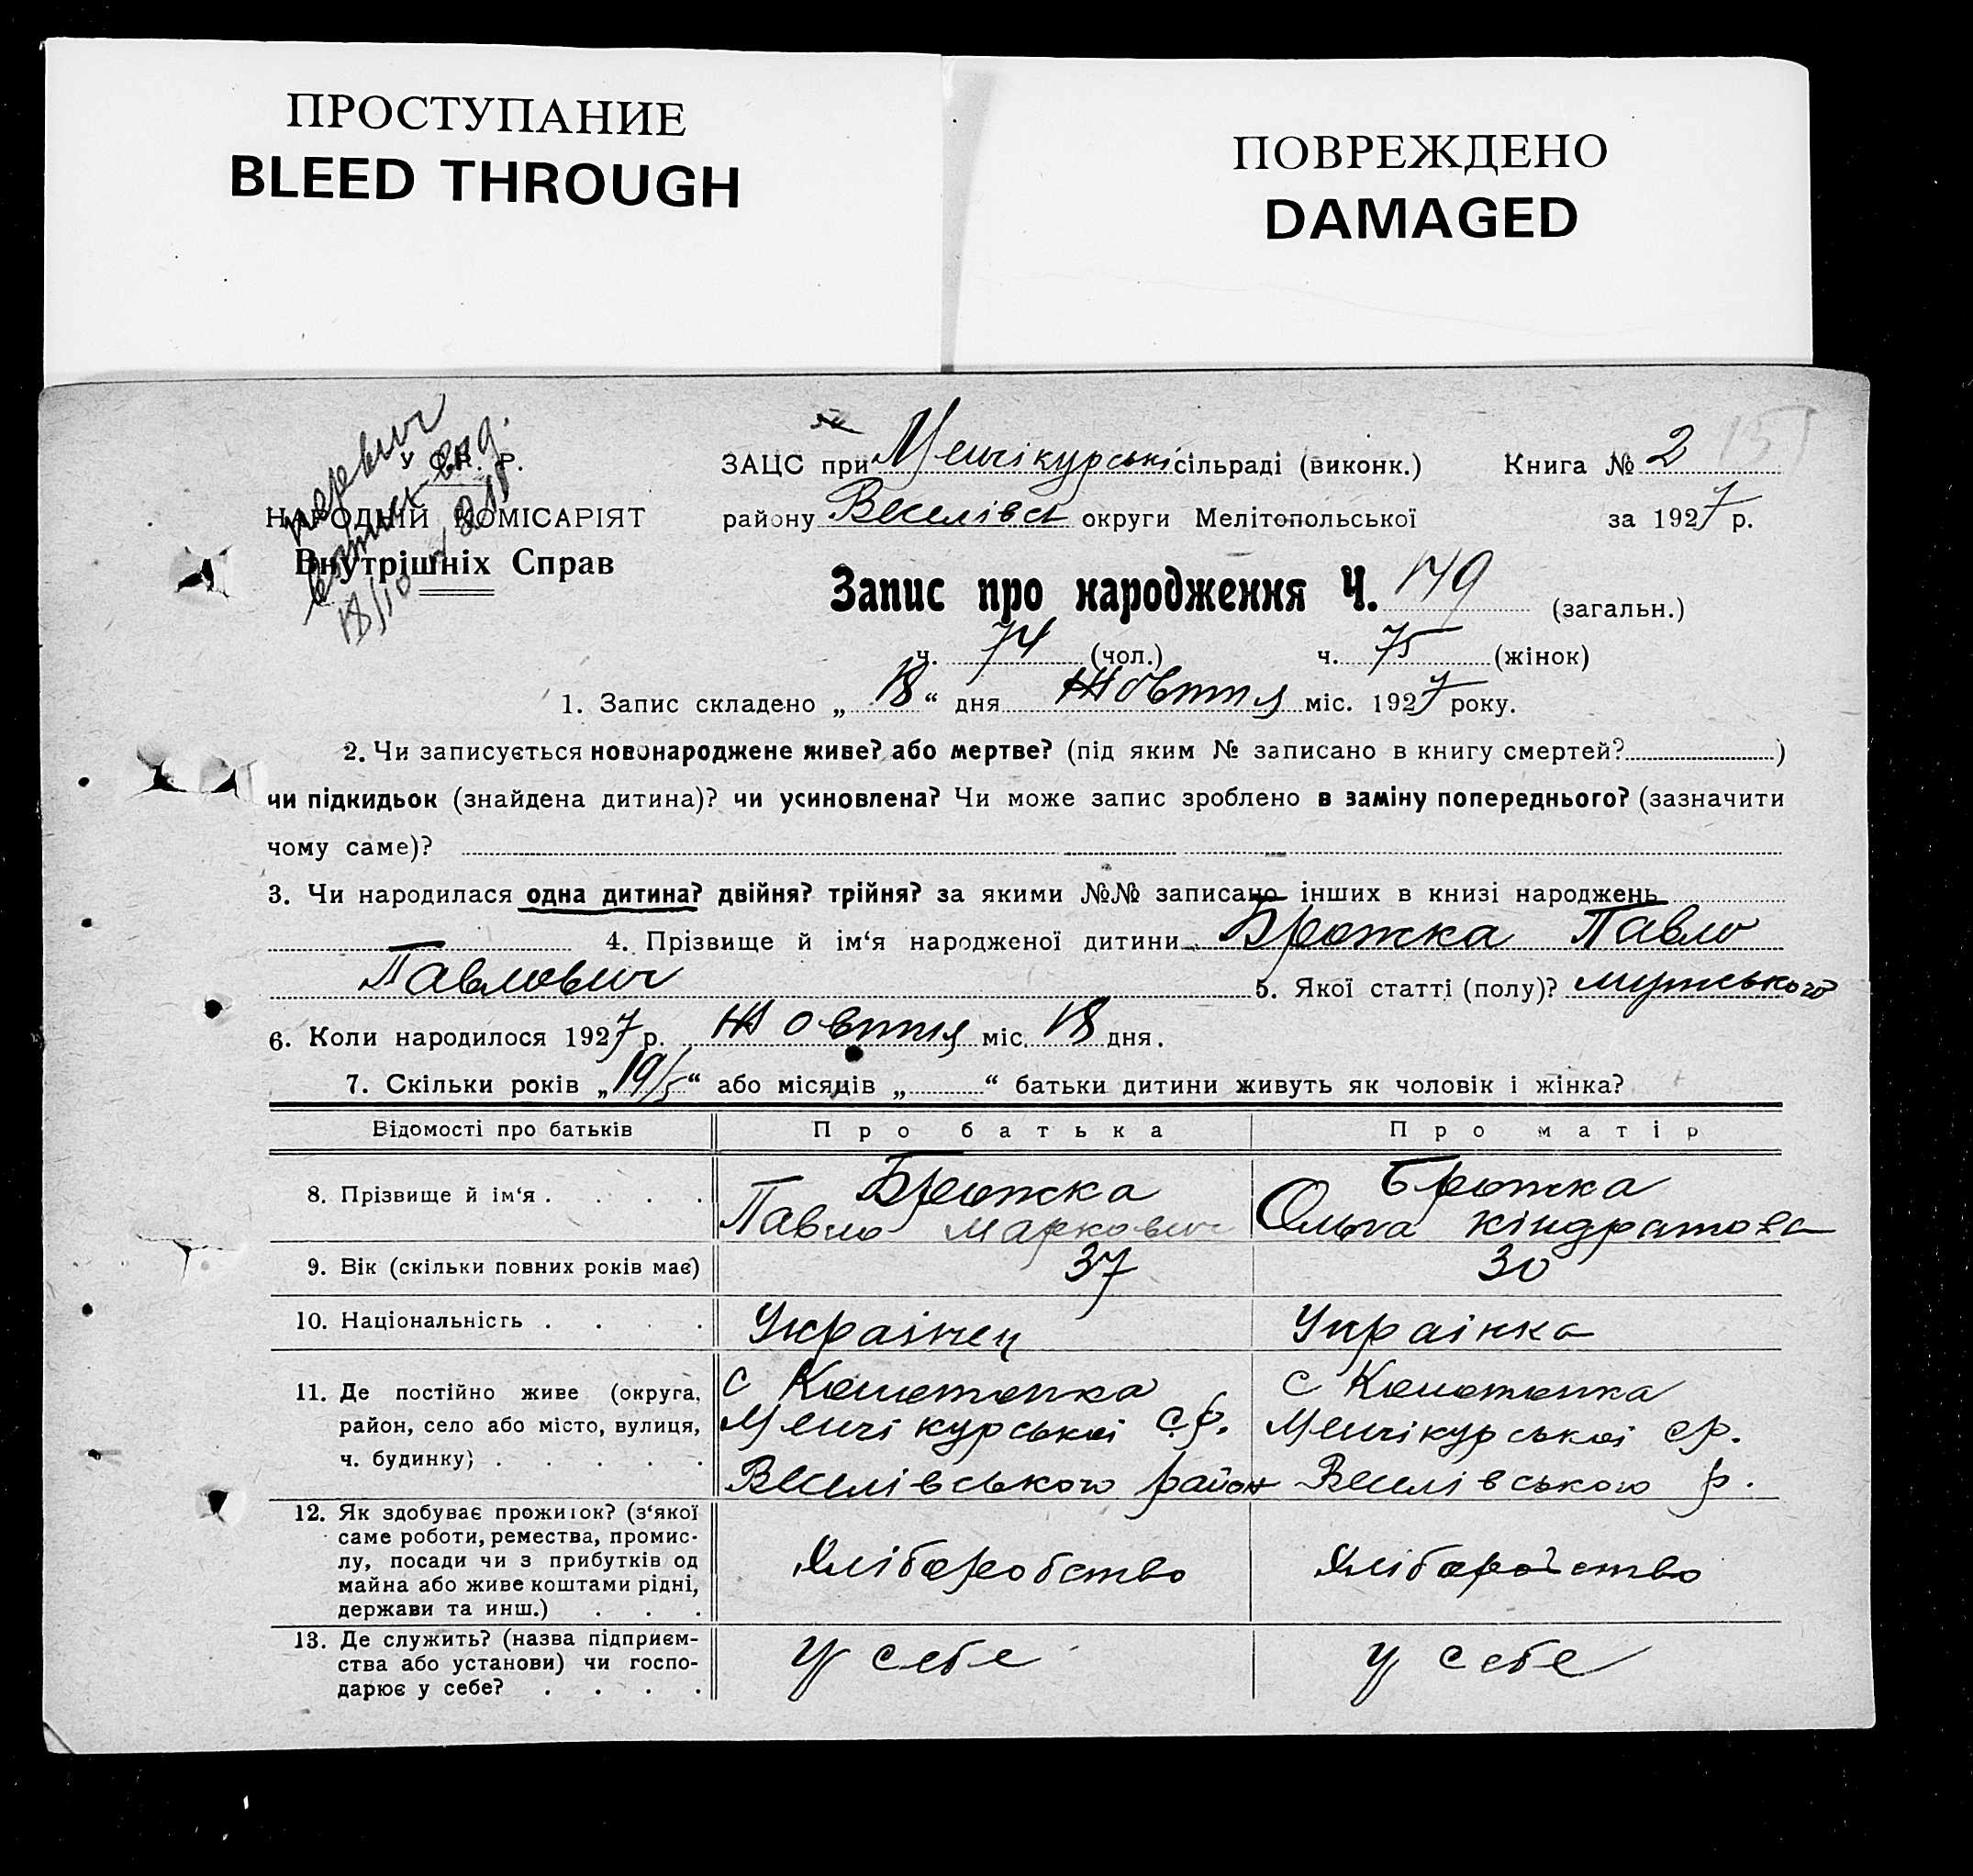 ПРОСТУПАНИЕ
BLEED THROUGH
ПОВРЕЖДЕНО
DAMAGED
У С. Р. Р.
НАРОДНІЙ КОМІСАРІЯТ
Внутрішніх Справ
18/10
ЗАЦС при Менчікурські сільраді (виконк.) Книга № 2 151
району Веселівсь округи Мелітопольської за 1927 р.
Запис про народження Ч. 149 (загальн.)
ч. 74 (чол.) ч. 75 (жінок)
1. Запис складено „ 18 “ дня Жовтня міс. 1927 року.
2. Чи записується новонароджене живе? або мертве? (під яким № записано в книгу смертей? )
чи підкидьок (знайдена дитина)? чи усиновлена? Чи може запис зроблено в заміну попереднього? (зазначити
чому саме)?
3. Чи народилася одна дитина? двійня? трійня? за якими №№ записано інших в книзі народжень
4. Прізвище й ім‘я народженої дитини Брожка Павло
Павлович 5. Якої статті (полу)? мужського
6. Коли народилося 1927 р. Жовтня міс. 18 дня.
7. Скільки років „ 19/5 “ або місяців „ “ батьки дитини живуть як чоловік і жінка?
Відомості про батьків Про батька Про матір
8. Прізвище й ім‘я . . . . Брожка Брожка
Павло Маркович Ольга Кіндратова
9. Вік (скільки повних років має) 37 30
10. Національність . . . . Українец Українка
11. Де постійно живе (округа, с с
район, село або місто, вулиця, Менчікурської с.р. Менчікурської ср.
ч. будинку) . . . . . Веселівського район Веселівського р.
12. Як здобуває прожиток? (з‘якої
саме роботи, ремества, промис-
лу, посади чи з прибутків од Хліборобство Хліборобство
майна або живе коштами рідні,
держави та инш.) . . .
13. Де служить? (назва підприєм- У себе у себе
ства або установи) чи госпо-
дарює у себе? . . . .